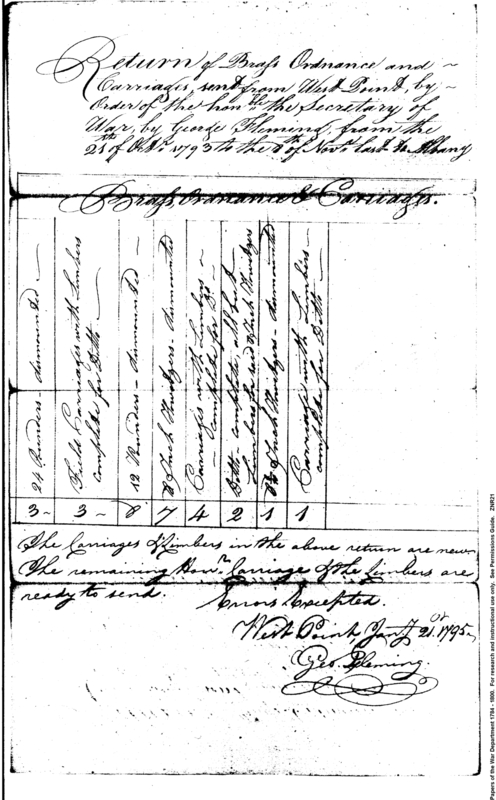 Return of Brass Ordnance and ~
Carriages, sent from West Point, by ~
Order of the honble the Secretary of
War, by George Fleming, from the
21st of Octr 1793 to the of Novr last to Albany
Brass, Ordnance & Carriages.
24 Pounders - dismounted
Field Carriages with Limbers
complete for Ditto
12 Pounders - dismounted
8 Inch Howitzers - dismounted
Carriages with Limbers
complete for Do
Ditto complete, all but
Limbers for 8 Inch Howitzers
5½ Inch Howitzers - dismounted
Carriages with Limbers
complete for Ditto
3 ~ 3 - 8 7 4 2 1 1
The Carriages & Limbers in the above return are new
The remaining Howr Carriage & the Limbers are
ready to send.
Errors Excepted.
West Point, Jany 21st 1795
Geo. Fleming.
Papers of the War Department 1784 - 1800. For research and instructional use only. See Permissions Guide. ZNR21